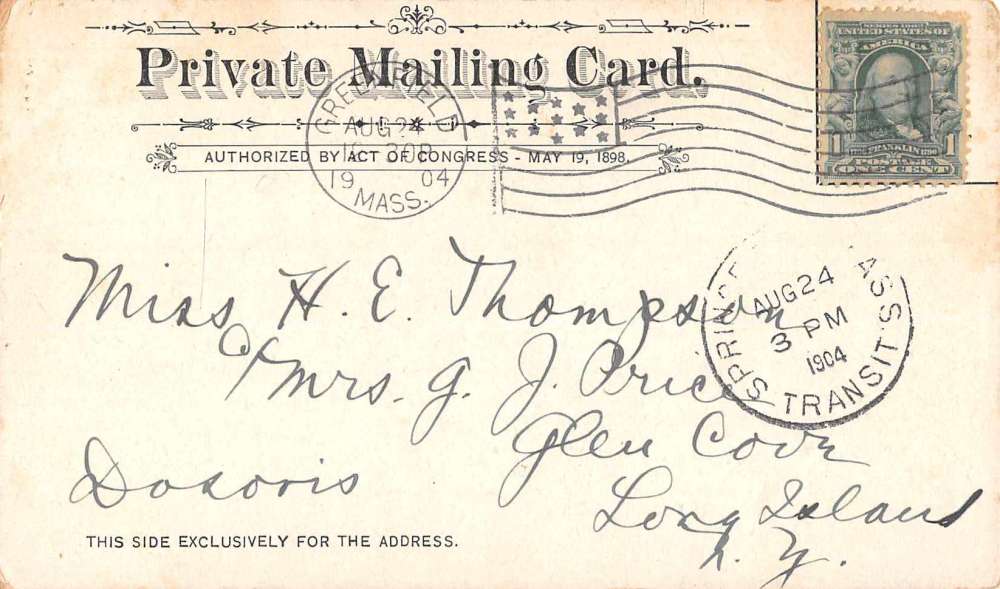 Private Mailing Card.
AUTHORIZED BY ACT OF CONGRESS - MAY 19, 1898.
GREENFIELD
AUG 24
12 30P
19 04
MASS.
SERIES 1902
UNITED STATES OF
AMERICA
1 1
FRANKLIN
POSTAGE
ONE CENT
Miss H. E. Thompson
c/ Mrs. G. J. Price
Glen Cove
Dosoris
Long Island
N. Y.
SPRING ASS.
AUG 24
3 PM
1904
TRANSIT
THIS SIDE EXCLUSIVELY FOR THE ADDRESS.